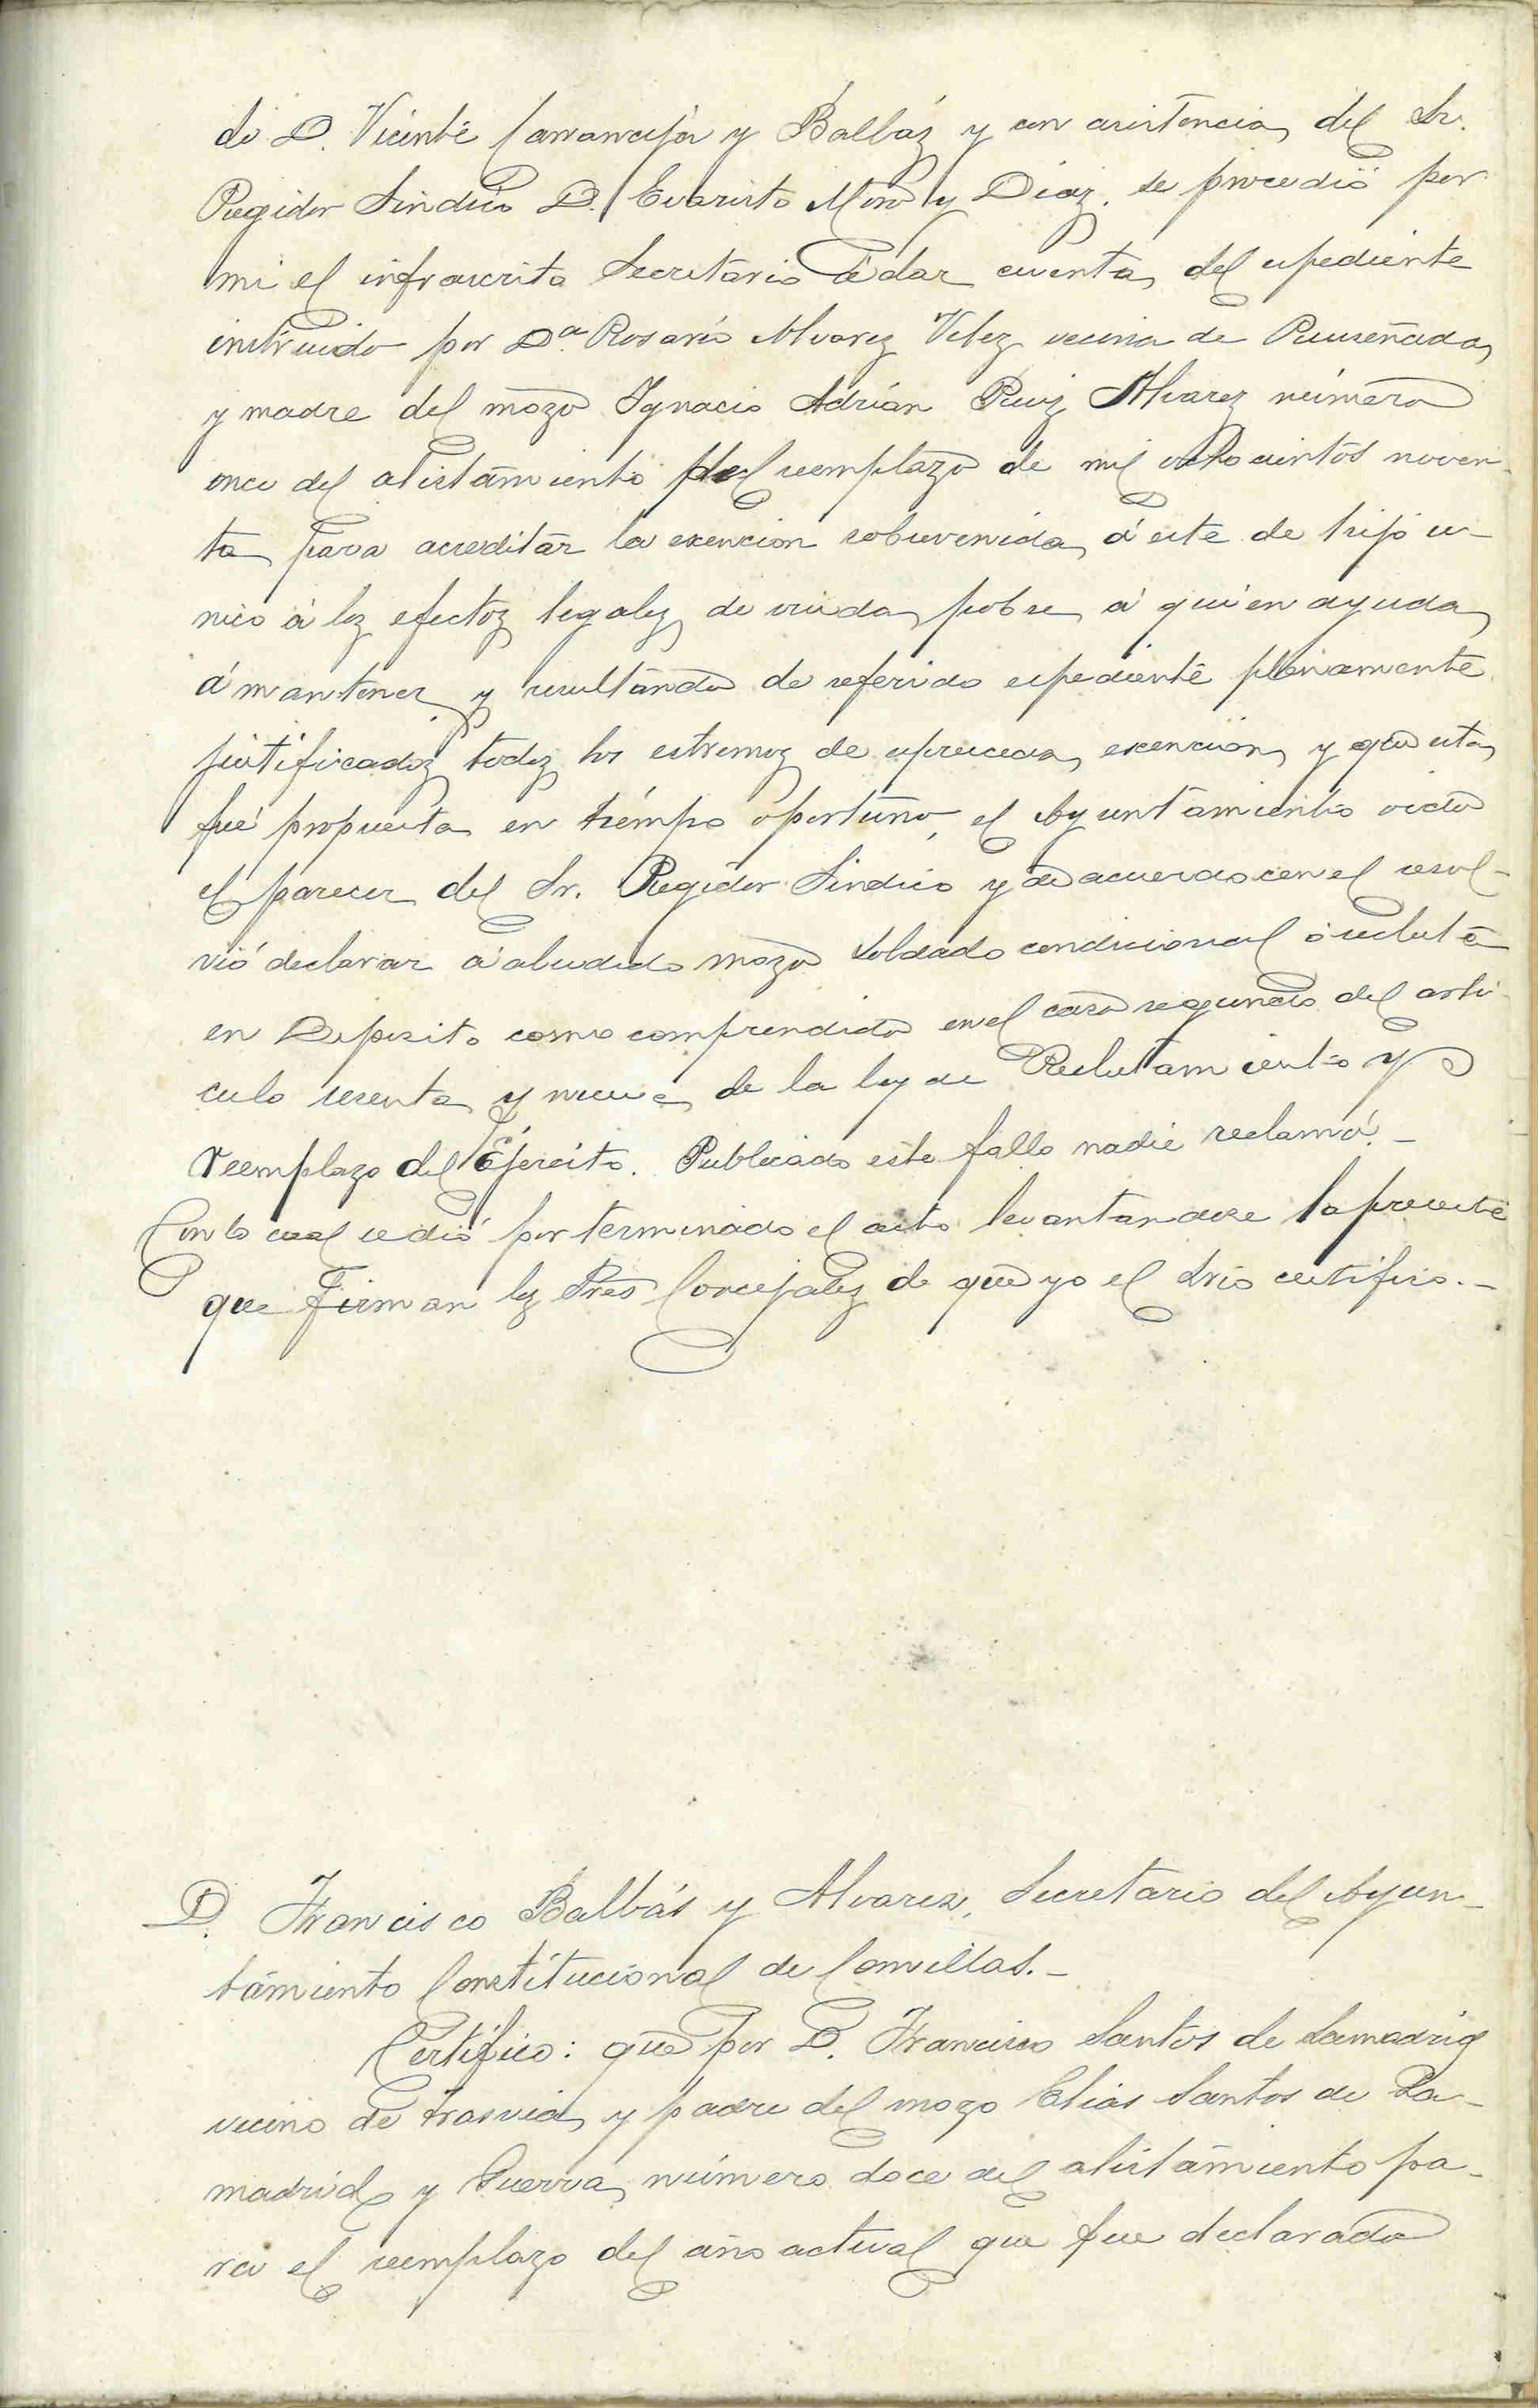 do D. Vicente Carranceja y Balbás y con asistencia del Sr.
Regidor Sindico D. Evaristo Moro y Diaz, se procedió por
mi el infrascrito Secretario á dar cuenta del espediente
instruido por Dª Rosario Alvarez Velez vecina de Ruiseñada
y madre del mozo Ygnacio Adrián Ruiz Alvarez número
once del alistamiento del reemplazo de mil ochocientos noven-
ta para acreditar la exencion sobrevenida á este de hijo u-
nico á los efectos legales de viuda pobre á quien ayuda
á mantener y resultando de referido espediente plenamente
justificados todos los estremos de espresada exencion y que esta
fué propuesta en tiempo oportuno, el Ayuntamiento oido
el parecer del Sr. Regidor Sindico y de acuerdo con el resol-
vió declarar á aludido mozo soldado condicional ó recluta
en Deposito como comprendido en el caso segundo del arti-
culo sesenta y nueve de la ley de Reclutamiento y
reemplazo del Ejército. Publicado este fallo nadie reclamó. -
Con lo cual se dió por terminado el acto levantandose la presente
que firman los Sres Concejales de que yo el Srio certifico. -
D. Francisco Balbás y Alvarez, Secretario del Ayun-
tamiento Constitucional de Comillas. -
Certifico: que por D. Francisco Santos de Lamadrid
vecino de Trasvia y padre del mozo Elias Santos de La-
madrid y Guerra, número doce del alistamiento pa-
ra el reemplazo del año actual que fue declarado